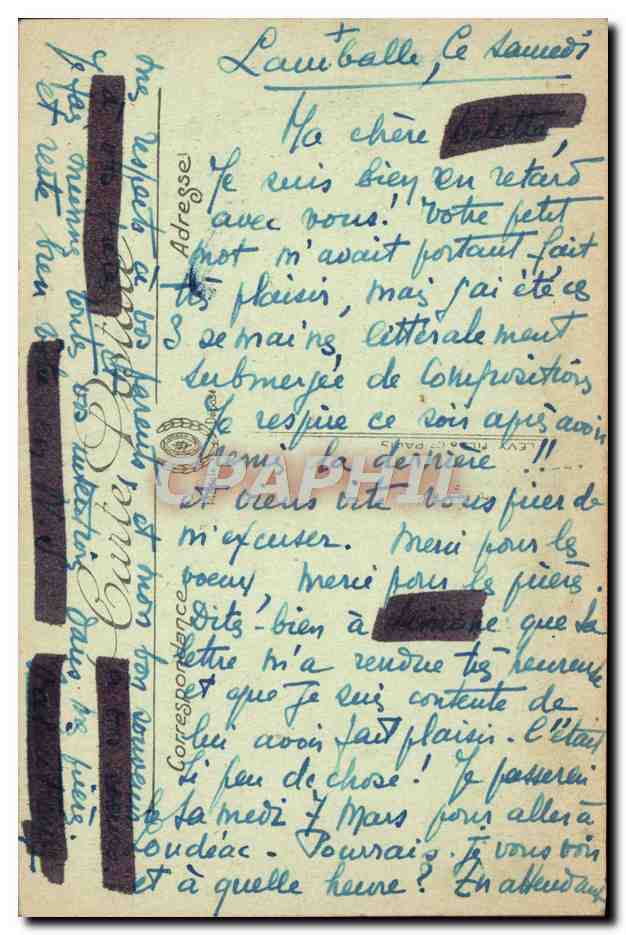 Lamballe, Ce Samedi
Ma chère
Je suis bien en retard
avec vous! Votre petit
mot m'avait portant fait
très plaisir, mais j'ai été ces
3 semaines littéralement
submergée de compositions
Je respire ce soir après avoir
remis la dernière !!!
et viens vite vous prier de
m'excuser. Merci pour les
voeux, merci pour les prières.
Dites-bien à que sa
lettre m'a rendue très heureuse
et que je suis contente de
lui avoir fait plaisir. C'était
si peu de chose! Je passerai
le samedi 7 Mars pour aller à
Loudéac. Pourrais-je vous voir
et à quelle heure? En attendant
mes respects à vos parents et mon bon souvenir
Je fais mienne toutes vos intentions dans mes prières
et reste bien
Carte Postale
Correspondance
Adresse
LEVY FILS & Cie PARIS
CPAPHIL